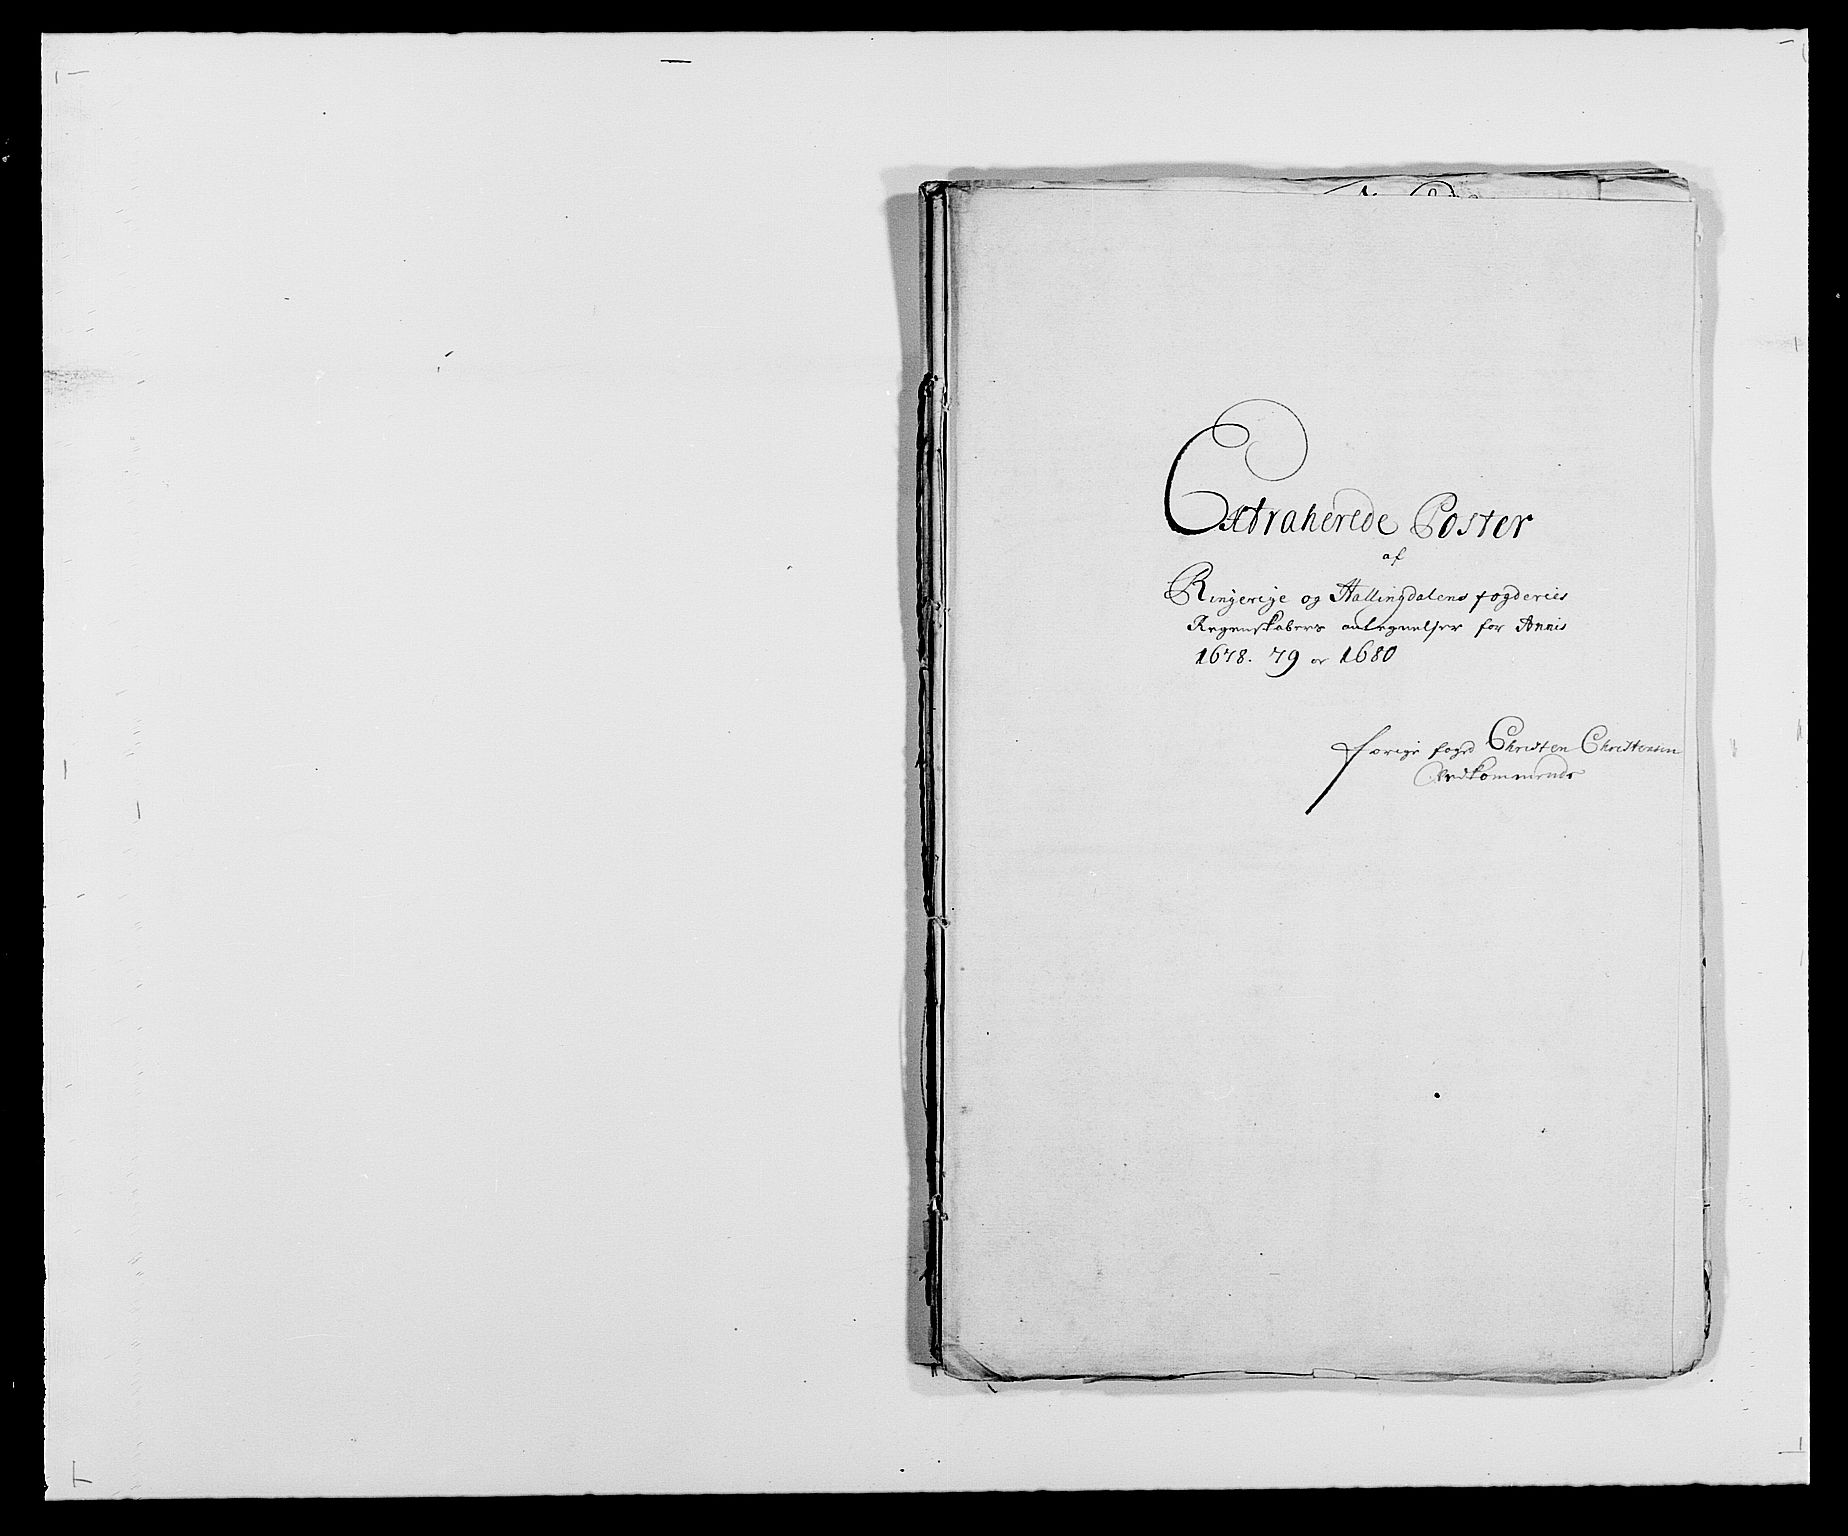 Extraherede Poster
af
Ringerige og Hallingdalens fogderies
Regenskabers antegnelser for Annis
1678. 79 oc 1680
forige foged Christen Christensen
Vedkommende